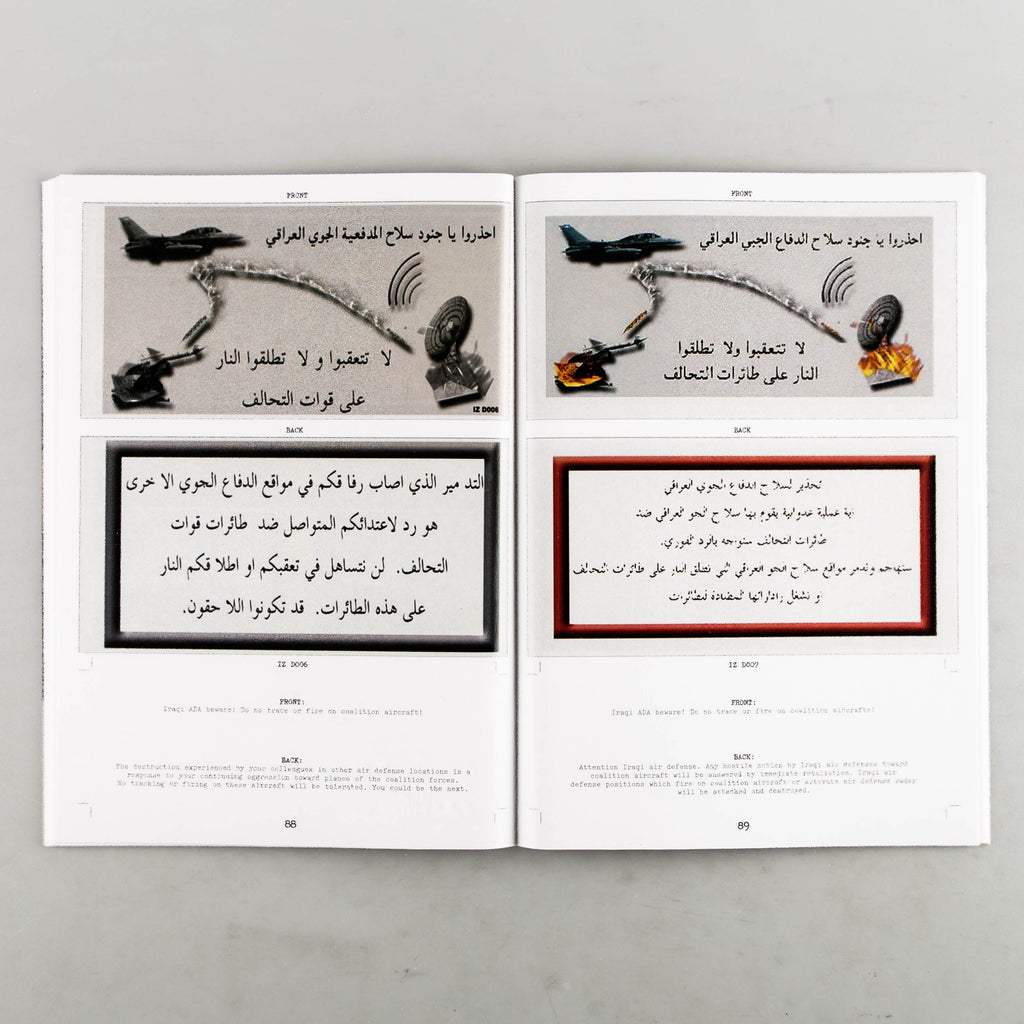 FRONT
احذروا يا جنود سلاح المدفعية الجوي العراقي
لا تتعقبوا و لا تطلقوا النار
على قوات التحالف
IZ D006
BACK
التد مير الذي اصاب رفا قكم في مواقع الدفاع الجوي الا خرى
هو رد لاعتدائكم المتواصل ضد طائرات قوات
التحالف. لن نتساهل في تعقبكم او اطلا قكم النار
على هذه الطائرات. قد تكونوا اللا حقون.
IZ D006
FRONT:
Iraqi ADA beware! Do no trace or fire on coalition aircraft!
BACK:
The destruction experienced by your colleagues in other air defense locations is a
response to your continuing aggression toward planes of the coalition forces.
No tracking or firing on these aircraft will be tolerated. You could be the next.
88
FRONT
احذروا يا جنود سلا ح الدفاع الجبي العراقي
لا تتعقبوا ولا تطلقوا
النار على طائرات التحالف
BACK
تحذير لسلا ح الدفاع الجوي العراقي
اية عملية عدوانية يقوم بها سلا ح الجو العراقي ضد
طائرات التحالف ستواجه بالرد الفوري.
سنهاجم وندمر مواقع سلا ح الجو العراقي التي تطلق النار على طائرات التحالف
او تشغل راداراتها المضادة للطائرات
IZ D007
FRONT:
Iraqi ADA beware! Do no trace or fire on coalition aircrafts!
BACK:
Attention Iraqi air defense. Any hostile action by Iraqi air defenses toward
coalition aircraft will be answered by immediate retaliation. Iraqi air
defense positions which fire on coalition aircraft or activate air defense radar
will be attacked and destroyed.
89